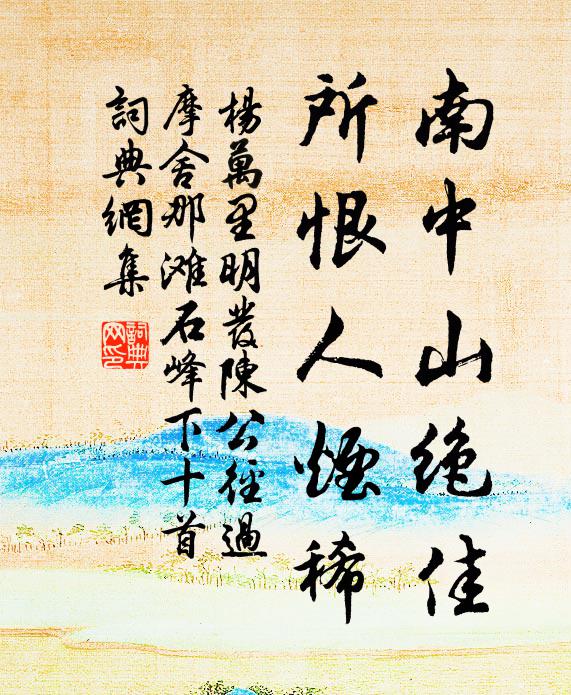 南中山绝佳
所恨人煙稀
楊萬里明發陳公徑過
摩舍那滩石峰下十首
詞典網集
詞典网印